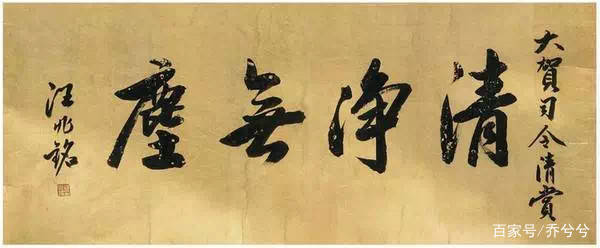 大賀司令清賞
清淨無塵
汪兆銘
百家号/乔兮兮